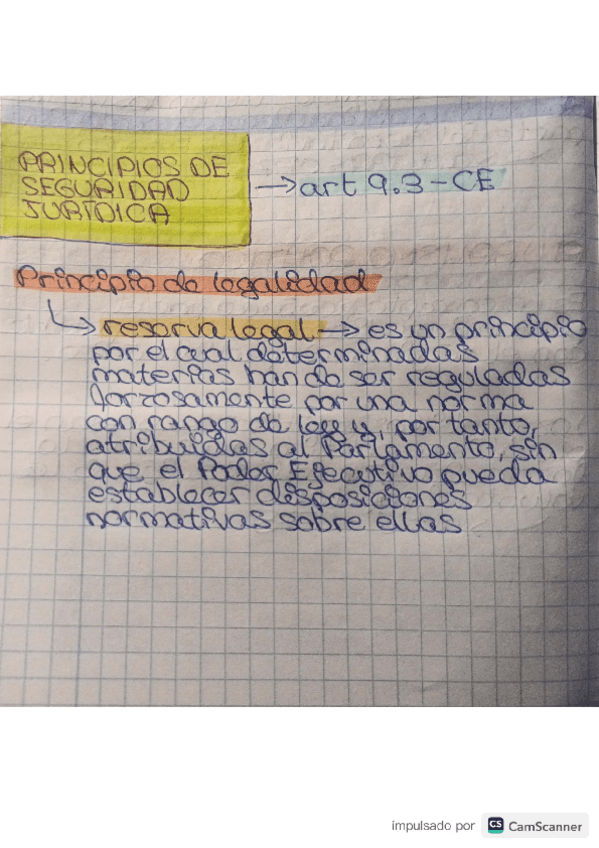 PRINCIPIOS DE
SEGURIDAD
JURÍDICA
→ art 9.3 - CE
Principio de legalidad
↳ reserva legal → es un principio
por el cual determinadas
materias han de ser reguladas
forzosamente por una norma
con rango de ley y, por tanto,
atribuidas al Parlamento, sin
que el Poder Ejecutivo pueda
establecer disposiciones
normativas sobre ellas
impulsado por CS CamScanner